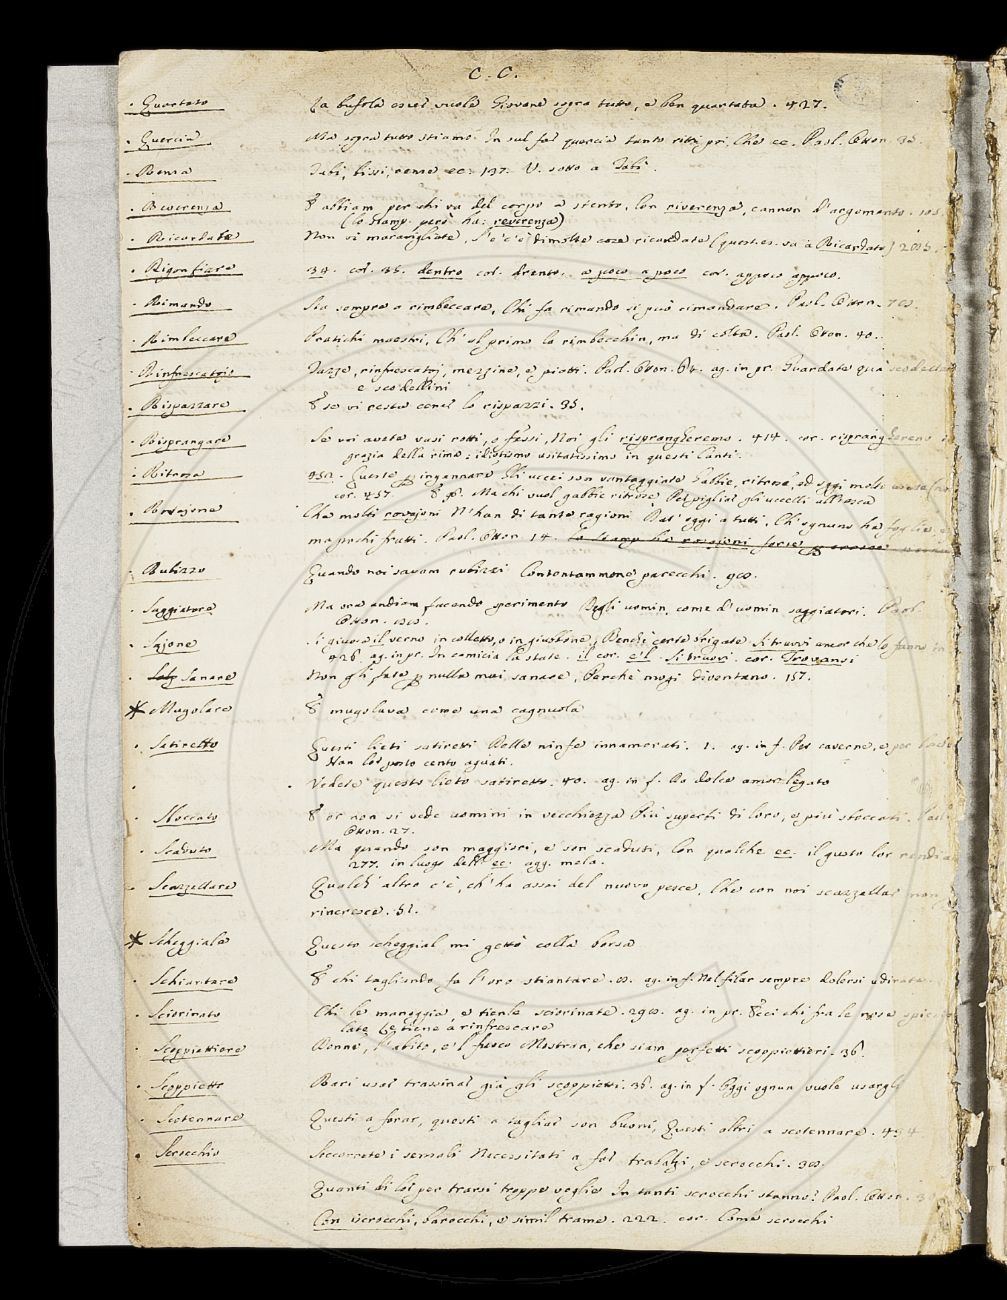 C. C.
Quartato La bufola esser vuole Giovane sopra tutto, e ben quartata. 427.
Quercia Ma sopra tutto stiamo In sul far quercia tanto ritti pri, Che ec. Paol. Otton. 35
Rensa Tabi, bissi, rense ec. 137. V. sotto a Tabi.
Reverenza E abbiam per chi va del corpo a stento, Con riverenza, cannon d'argomento. 101.
(lo stamp. però ha: reverenza)
Ricordata Non vi maravigliate, S'e' c'è dimolte cose ricordate (quest. es. va a Ricordato) 205.
Rigonfiare 34. col. 35. dentro col. drento. a poco a poco cor. appoco appoco.
Rimando Sta sempre a rimbeccare, Chi fa rimando si può rimandare. Paol. Otton. 70.
Rimbeccare Pratichi maestri, Ch'al primo la rimbecchin, ma di colta. Paol. Otton. 40.
Rinfrescatoio Tazze, rinfrescatoj, mezzine, e piatti. Paol. Otton. 84. ag. in pr. Guardate quà scodelle
e scodellini
Risparzare E se vi resta cenci lo risparzi. 35.
Risprangare Se voi avete vasi rotti, o fessi, Noi gli risprangheremo. 414. cor. risprangereno in
grazia della rima: idiotismo usitatissimo in questi Canti.
Ritrosa 452. Queste p ingannare Gli uccei son vantaggiate Gabbie, ritrose, ed oggi molto
cor. 457. E pr. Ma chi vuol gabbie ritrose Per pigliar gli uccelli all'esca
Rovajone Che molti rovajoni N'han di tante ragioni Dat'oggi a tutti, Ch'ognuno ha foglie, e
ma pochi frutti. Paol. Otton 14. Lo stamp ha rovajoni forse p errore
Rubizzo Quando noi savam rubizzi Contentammone parecchi. 90.
Saggiatore Ma ora andiam facendo sperimento Degli uomin, come d'uomin saggiatori. Paol.
Otton.
Sajone Si giuoca il verno in colletto, o in giubbone, Benchè certe brigate Si truovi ancor che lo fanno in
426. ag. in pr. In camicia la state. il cor. e'l. Si truovi. cor. Trovansi
Sanare Non gli fate p nulla mai sanare, Perchè mogi diventano. 157.
Mugolare E mugolava come una cagnuola
Satiretto Questi lieti satiretti Delle ninfe innamorati. 1. ag. in f. Per caverne, e per boschetti
Han lor posto cento aguati.
Vedete questo lieto satiretto. 40. ag. in f. Da dolce amor legato
Stoccato E or non si vede uomini in vecchiezza Più superbi di loro, e più stoccati. Paol.
Otton. 27.
Scaduto Ma quando son maggiori, e son scaduti, Con qualche ec. il gusto lor rendi
277. in luogo dell' ec. agg. mela.
Scazzellare Qualch'altro c'è, ch'ha assai del nuovo pesce, Che con noi scazzellar non
rincresce. 51.
Scheggiale Questo scheggial mi gettò colla borsa
Schiantare E chi tagliando fa l'oro stiantare. 8. ag. in f. Nel filar sempre dolersi
Sciorinato Chi le maneggia, e tienle sciorinate. 290. ag. in pr. Ecci chi fra le rose
late Le tiene a rinfrescare
Scoppiettiere Donne, l'abito, e'l fuoco Mostran, che siam perfetti scoppiettieri. 36.
Scoppietto Rari usar trassinar già gli scoppietti. 36. ag. in f. Oggi ognun vuole usargli
Scotennare Questi a forar, questi a tagliar son buoni, Questi altri a scotennare. 494
Scrocchio Soccorrete i sensali Necessitati a far trabalzi, e scrocchi. 30.
Quanti di lor per trarsi troppe voglie In tanti scrocchi stanno! Paol. Otton. 30
Con iscrocchi, barocchi, e simil trame. 222. cor. Come scrocchi